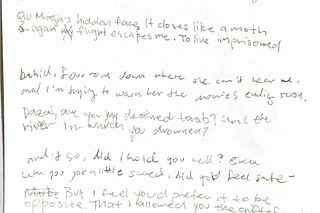 Qiu Miaojin's hidden face, It closes like a moth
& again my flight escapes me. To live imprisoned
behind, four rows down where she can't hear me.
And I'm trying to warn her the movie's ending soon.
Dazai, are you my destined tomb? am I the
river in which you drowned?
And if so, did I hold you well? Even
when you you little scared, did you feel safe -
Maybe But I feel you'd prefer it to be
opposite. That I allowed you the